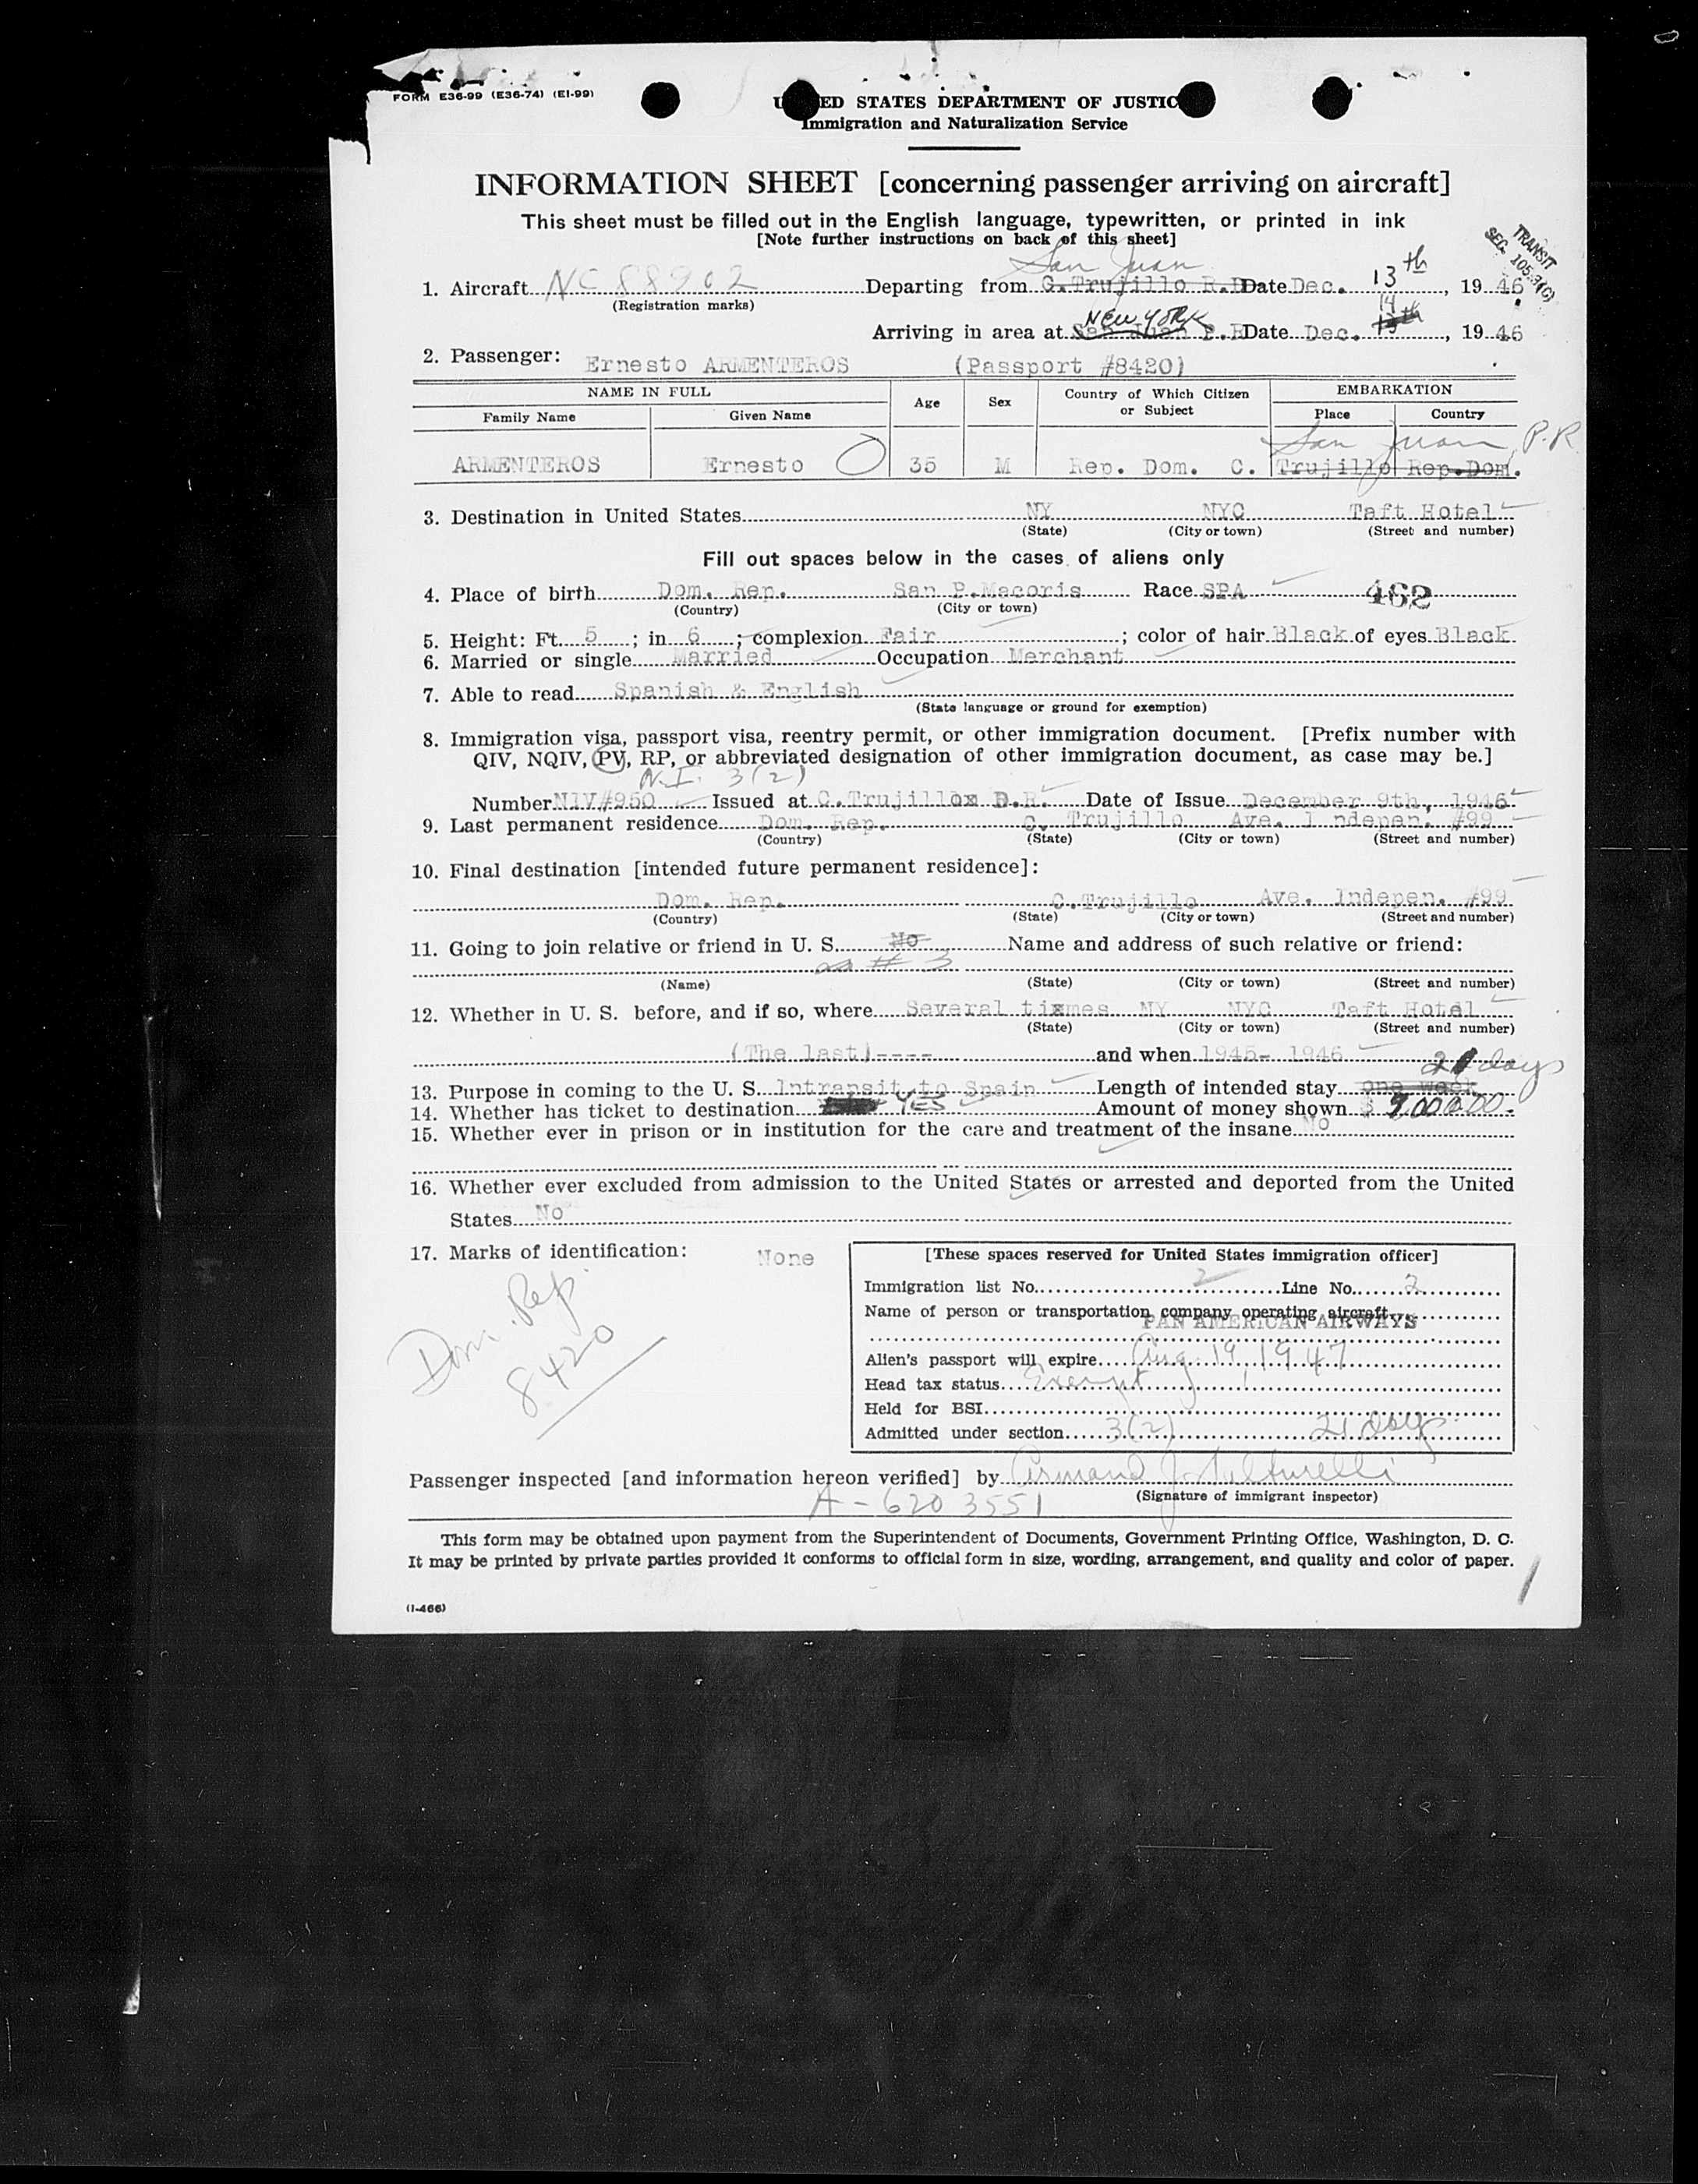 FORM E36-99 (E36-74) (EI-99)
UNITED STATES DEPARTMENT OF JUSTICE
Immigration and Naturalization Service
INFORMATION SHEET [concerning passenger arriving on aircraft]
This sheet must be filled out in the English language, typewritten, or printed in ink
[Note further instructions on back of this sheet]
TRANSIT
SEC. 105.3(C)
San Juan
1. Aircraft NC 88902 Departing from C.Trujillo R.D Date Dec. 13th, 19 46
(Registration marks)
New York 14
Arriving in area at San Juan P.R Date Dec. 13th, 19 46
2. Passenger: Ernesto ARMENTEROS (Passport #8420)
NAME IN FULL Age Sex Country of Which Citizen or Subject EMBARKATION
Family Name Given Name Place Country
San Juan, P.R
ARMENTEROS Ernesto 35 M Rep. Dom. C. Trujillo Rep.Dom.
3. Destination in United States NY NYC Taft Hotel
(State) (City or town) (Street and number)
Fill out spaces below in the cases of aliens only
4. Place of birth Dom. Rep. San P.Macoris Race SPA 462
(Country) (City or town)
5. Height: Ft. 5; in 6; complexion Fair; color of hair Black of eyes Black
6. Married or single Married Occupation Merchant
7. Able to read Spanish & English
(State language or ground for exemption)
8. Immigration visa, passport visa, reentry permit, or other immigration document. [Prefix number with
QIV, NQIV, PV, RP, or abbreviated designation of other immigration document, as case may be.]
N.I. 3(2)
Number NIV#950 Issued at C.Trujillox D.R. Date of Issue December 9th, 1946
9. Last permanent residence Dom. Rep. C. Trujillo Ave. I ndepen. #99
(Country) (State) (City or town) (Street and number)
10. Final destination [intended future permanent residence]:
Dom. Rep. C.Trujillo Ave. Indepen. #99
(Country) (State) (City or town) (Street and number)
11. Going to join relative or friend in U. S. No Name and address of such relative or friend:
as # 3
(Name) (State) (City or town) (Street and number)
12. Whether in U. S. before, and if so, where Several tixmes NY NYC Taft Hotel
(State) (City or town) (Street and number)
(The last)---- and when 1945- 1946
21 days
13. Purpose in coming to the U. S. Intransit to Spain Length of intended stay one week
14. Whether has ticket to destination YES Amount of money shown $
15. Whether ever in prison or in institution for the care and treatment of the insane No
16. Whether ever excluded from admission to the United States or arrested and deported from the United
States No
17. Marks of identification: None
Dom. Rep.
8420
[These spaces reserved for United States immigration officer]
Immigration list No. 2 Line No. 2
Name of person or transportation company operating aircraft
PAN AMERICAN AIRWAYS
Alien's passport will expire Aug 19, 1947
Head tax status Exempt
Held for BSI
Admitted under section 3(2) 21 days
Passenger inspected [and information hereon verified] by Armand J.
(Signature of immigrant inspector)
A-6203551
This form may be obtained upon payment from the Superintendent of Documents, Government Printing Office, Washington, D. C.
It may be printed by private parties provided it conforms to official form in size, wording, arrangement, and quality and color of paper.
(I-466)